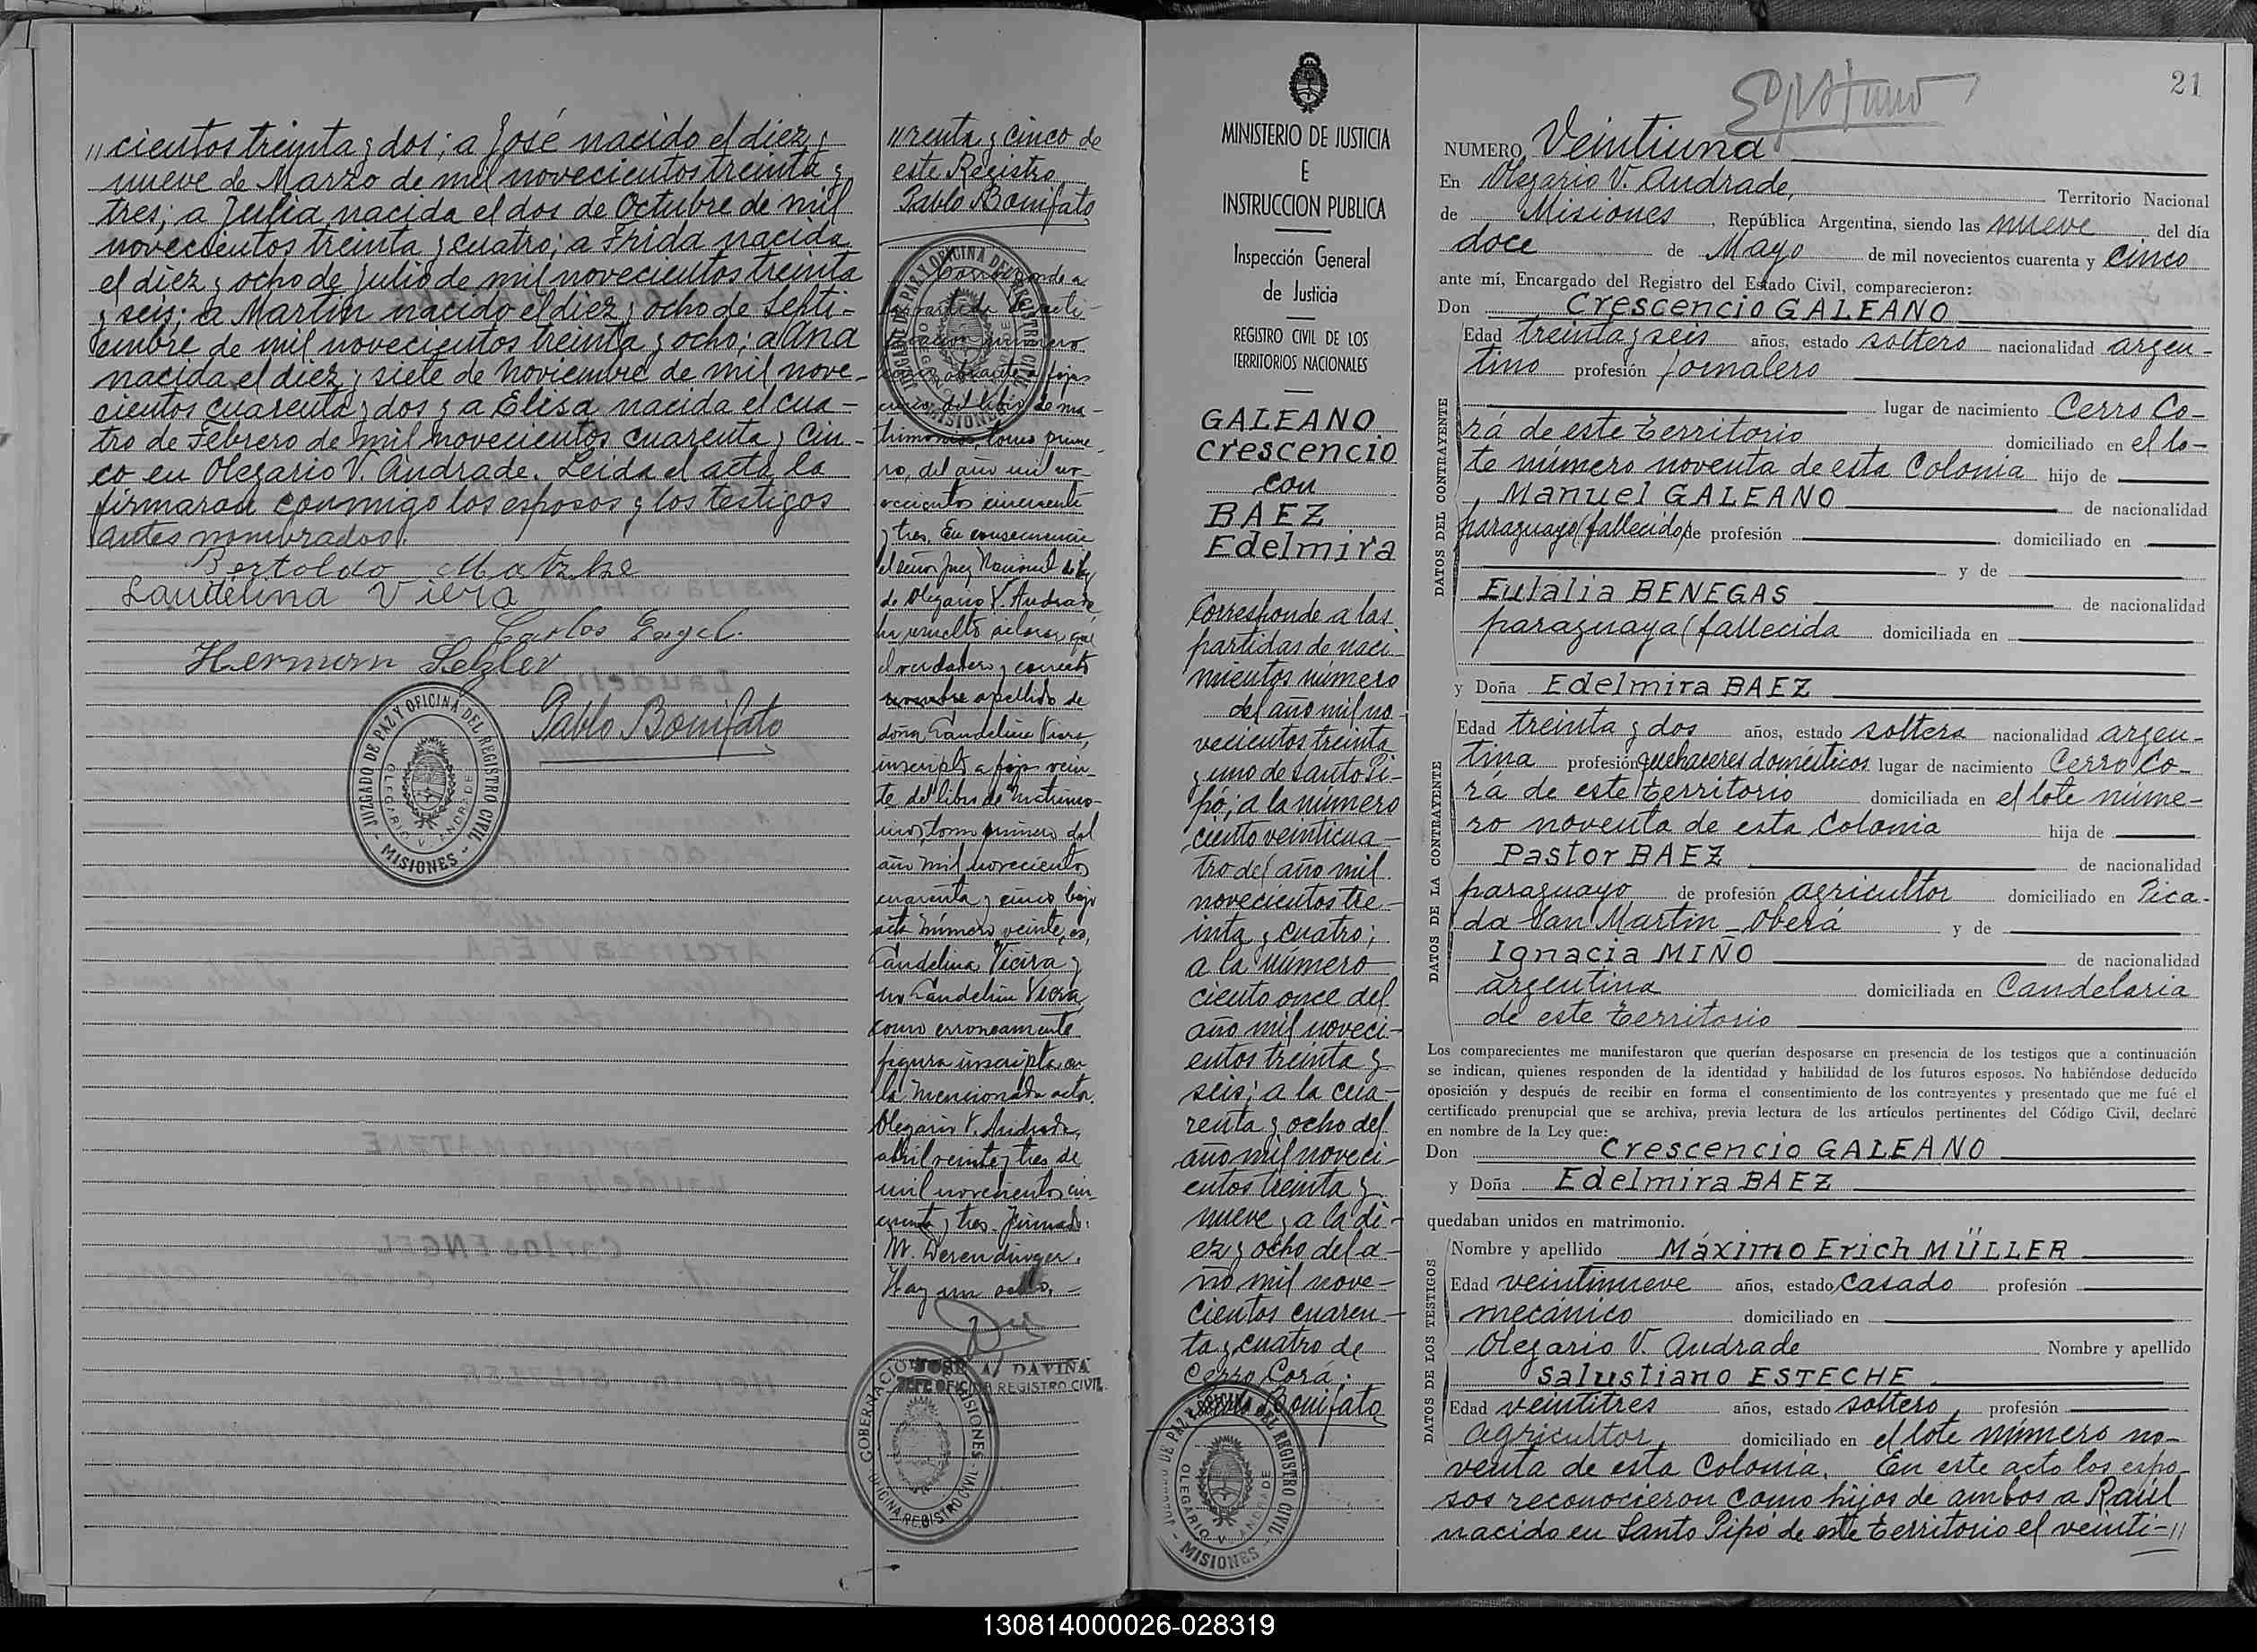 // cientos treinta y dos; a José nacido el diez y
nueve de Marzo de mil novecientos treinta y
tres; a Julia nacida el dos de Octubre de mil
novecientos treinta y cuatro; a Frida nacida
el diez y ocho de Julio de mil novecientos treinta
y seis; a Martín nacido el diez y ocho de Septi-
embre de mil novecientos treinta y ocho; a Ana
nacida el diez y siete de Noviembre de mil nove-
cientos cuarenta y dos y a Elisa nacida el cua-
tro de Febrero de mil novecientos cuarenta y cin-
co en Olegario V. Andrade. Leida el acta la
firmaron conmigo los esposos y los testigos
antes nombrados.
Bertoldo Matzke
Laudelina Viera
Carlos Engel.
Hermann Selzler
Pablo Bonifato
JUZGADO DE PAZ Y OFICINA DEL REGISTRO CIVIL
OLEGARIO V. ANDRADE
- MISIONES -
// renta y cinco de
este Registro
Pablo Bonifato
JUZGADO DE PAZ Y OFICINA DEL REGISTRO CIVIL
MISIONES
Corresponde a
número
fojas
del libro de ma-
trimonios, tomo prime-
ro, del año mil no-
vecientos cincuenta
y tres. En consecuencia
el señor Juez Nacional de Paz
de Olegario V. Andrade
ha resuelto aclarar que
el verdadero y correcto
apellido de
doña Laudelina Viera,
inscripta a fojas vein-
te del libro de matrimo-
nios, tomo primero del
año mil novecientos
cuarenta y cinco bajo
acta número veinte, es,
Laudelina Vieira y
no Laudelina Viera
como erroneamente
figura inscripta en
la mencionada acta.
Olegario V. Andrade,
abril veinte y tres de
mil novecientos cin-
cuenta y tres. Firmado:
W. Derendinger.
Hay un sello. -
JOSE A. DAVIÑA
JEFE OFICINA REGISTRO CIVIL
GOBERNACION MISIONES
- OFICINA REGISTRO CIVIL -
MINISTERIO DE JUSTICIA
E
INSTRUCCION PUBLICA
Inspección General
de Justicia
REGISTRO CIVIL DE LOS
TERRITORIOS NACIONALES
GALEANO
Crescencio
con
BAEZ
Edelmira
Corresponde a las
partidas de naci-
mientos número
del año mil no-
vecientos treinta
y uno de Santo Pi-
pó; a la número
ciento veinticua-
tro del año mil
novecientos tre-
inta y cuatro;
a la número
ciento once del
año mil noveci-
entos treinta y
seis; a la cua-
renta y ocho del
año mil noveci-
entos treinta y
nueve y a la di-
ez y ocho del a-
ño mil nove-
cientos cuaren-
ta y cuatro de
Cerro Corá.
Pablo Bonifato
JUZGADO DE PAZ Y OFICINA DEL REGISTRO CIVIL
OLEGARIO V. ANDRADE
- MISIONES -
21
NUMERO Veintiuna
En Olegario V. Andrade, Territorio Nacional
de Misiones, República Argentina, siendo las nueve del día
doce de Mayo de mil novecientos cuarenta y cinco
ante mí, Encargado del Registro del Estado Civil, comparecieron:
Don Crescencio GALEANO
DATOS DEL CONTRAYENTE
Edad treinta y seis años, estado soltero nacionalidad argen-
tino profesión jornalero
lugar de nacimiento Cerro Co-
rá de este territorio domiciliado en el lo-
te número noventa de esta Colonia hijo de
Manuel GALEANO de nacionalidad
paraguayo (fallecido) de profesión domiciliado en
y de
Eulalia BENEGAS de nacionalidad
paraguaya (fallecida domiciliada en
y Doña Edelmira BAEZ
DATOS DE LA CONTRAYENTE
Edad treinta y dos años, estado soltera nacionalidad argen-
tina profesión quehaceres domésticos lugar de nacimiento Cerro Co-
rá de este territorio domiciliada en el lote núme-
ro noventa de esta Colonia hija de
Pastor BAEZ de nacionalidad
paraguayo de profesión agricultor domiciliado en Pica-
da San Martin - Oberá y de
Ignacia MIÑO de nacionalidad
argentina domiciliada en Candelaria
de este territorio
Los comparecientes me manifestaron que querían desposarse en presencia de los testigos que a continuación
se indican, quienes responden de la identidad y habilidad de los futuros esposos. No habiéndose deducido
oposición y después de recibir en forma el consentimiento de los contrayentes y presentado que me fué el
certificado prenupcial que se archiva, previa lectura de los artículos pertinentes del Código Civil, declaré
en nombre de la Ley que:
Don Crescencio GALEANO
y Doña Edelmira BAEZ
quedaban unidos en matrimonio.
DATOS DE LOS TESTIGOS
Nombre y apellido Máximo Erich MÜLLER
Edad veintinueve años, estado casado profesión
mecánico domiciliado en
Olegario V. Andrade Nombre y apellido
Salustiano ESTECHE
Edad veintitres años, estado soltero, profesión
agricultor, domiciliado en el lote número no-
venta de esta Colonia. En este acto los espo-
sos reconocieron como hijos de ambos a Raúl
nacido en Santo Pipó de este territorio el veinti-//
130814000026-028319